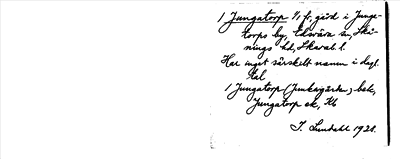 1 Jungatorp 1/1 fr. gård i Junga-
torps by, sn, Skå-
nings hd, Skarab. l.
Har inget särskilt namn i dagl.
tal
1 Jungatorp (Junkergården) bek,
Jungatorp ek, Kb
J. Lundahl 1921.